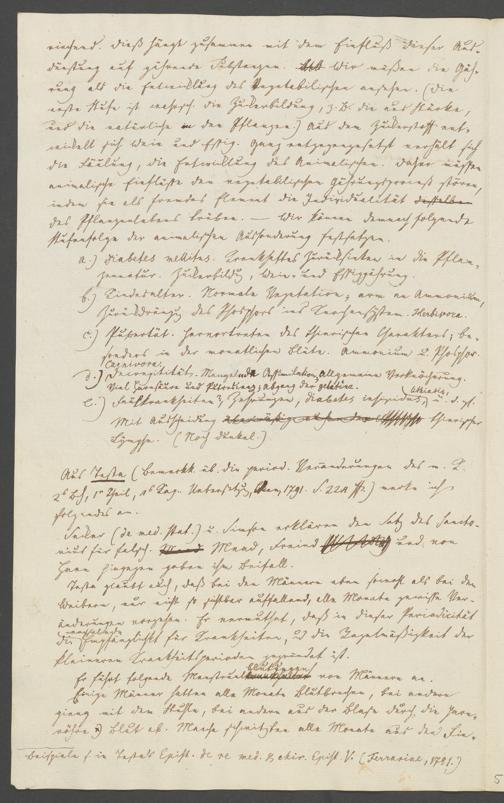 riechend. Dieß hängt zusammen mit dem Einfluß dieser Aus-
dünstung auf gährende Substanzen. Wir müßen die Gäh-
rung als die Entwicklung des Vegetabilischen ansehen. (Die
erste Stufe ist die Zuckerbildung, z.B. die aus Stärke,
und die natürliche in den Pflanzen) Aus dem Zuckerstoff ent-
wickelt sich Wein und Essig. Ganz entgegengesetzt verhält sich
die Fäulung, die Entwicklung des Animalischen. Daher müssen
animalische Einflüße den vegetabilischen Gährungsprozeß stören,
indem sie als fremdes Element die Individualität desselben
des Pflanzenlebens trüben. — Wir können demnach folgende
Stufenfolge der animalischen Aussonderung festsetzen.
a.) Diabetes mellitus. Krankhaftes Zurücksinken in die Pflan-
zennatur. Zuckerbildung, Wein- und Essiggährung.
b.) Kindesalter. Normale Vegetation; arm an Ammonium,
Zurückdrängung des Phosphors ins Knochensystem. Herbivora.
c.) Pubertät. Hervortreten des thierischen Charakters; be-
sonders in der monatlichen Blüte. Ammonium u. Phosphor.
Carnivora.
d.) Decrepitität. Mangelnde Assimilation, allgemeine Verknöcherung.
Viel Harnsäure und Abgang der gelatine.
e.) Faulkrankheiten, Zehrungen, diabetes insipidus, u. d. gl.
Mit Ausscheidung thierischer
Lymphe. (Noch dunkel.)
Aus Testa (Bemerkk. üb. die period. Veränderungen des m. K.
2s Bch, 1r Theil, Uebersetzg, 1791. S. 224 ff.) merke ich
folgendes an.
(de med. stat.) u. erklären den Satz des Sancto-
rius für falsch. Mead, Freind und von
Haen hingegen geben ihm Beifall.
Testa glaubt auch, daß bei den Männern eben sowohl als bei den
Weibern, nur nicht so sichtbar auffallend, alle Monate gewisse Ver-
änderungen vorgehen. Er vermuthet, daß in dieser Periodicität
die Empfänglichkeit für Krankheiten, und die Regelmäßigkeit der
kleineren Krankheitsperioden gegründet ist.
Er führt folgende Menstrualblutungen von Männern an.
Einige Männer hatten alle Monate Blutbrechen, bei andern
gieng mit dem Stuhle, bei andern aus der Blase durch die Harn-
röhre Blut ab. Manche schwitzten alle Monate aus den Fin-
Beispiele s. in Testas Epist. de re med. & chir. Epist. V. (Ferrariae, 1781.)
5